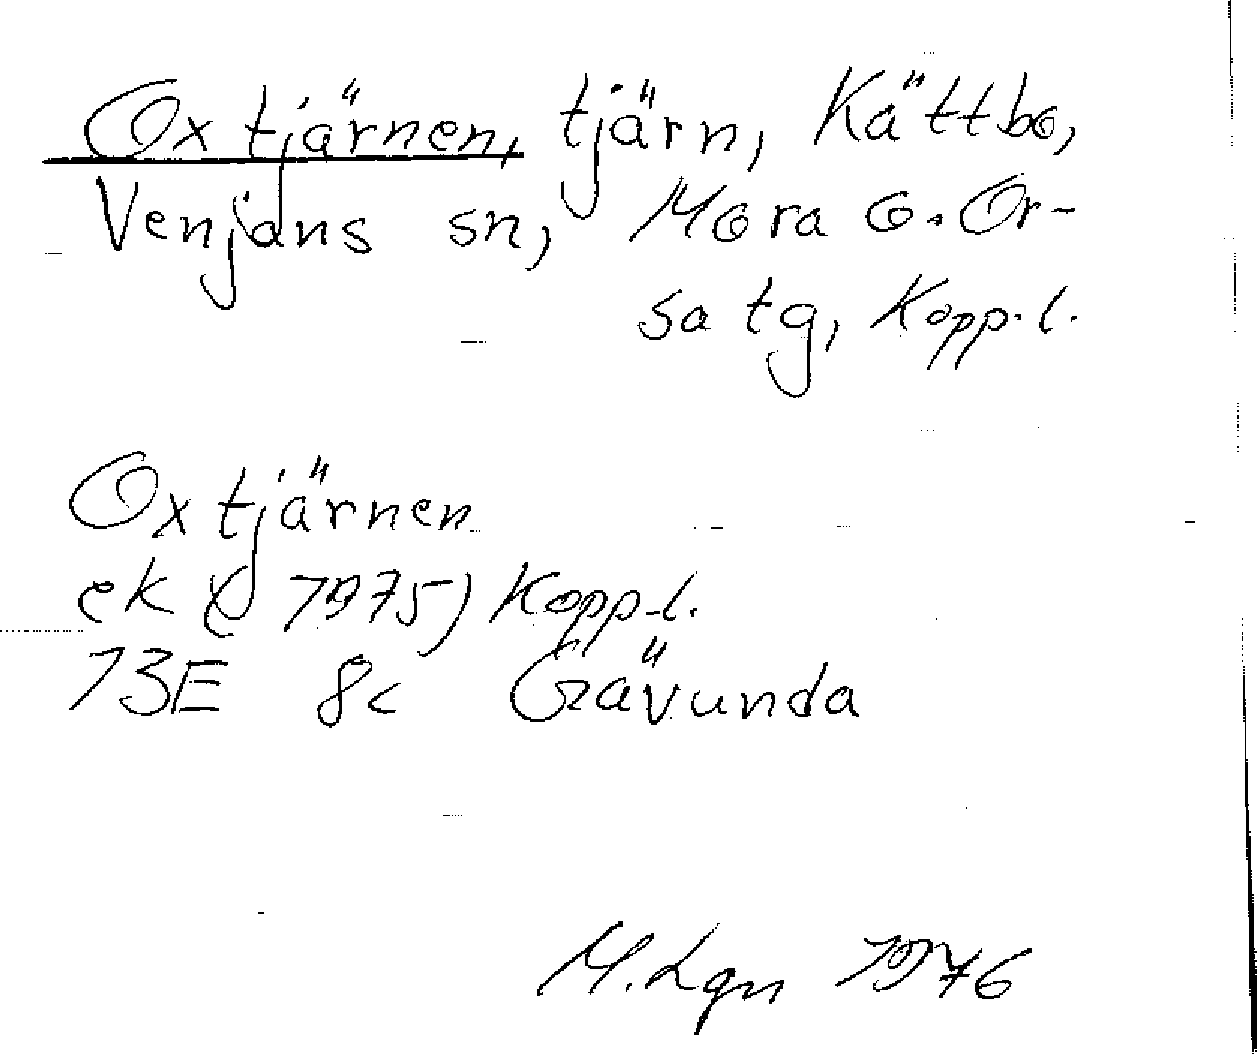 Oxtjärnen, tjärn, Kättbo,
Venjans sn, Mora o. Or-
sa tg, Kopp. l.
Oxtjärnen
ek (1975) Kopp. l.
13E 8c Gävunda
M. Lgn 1976